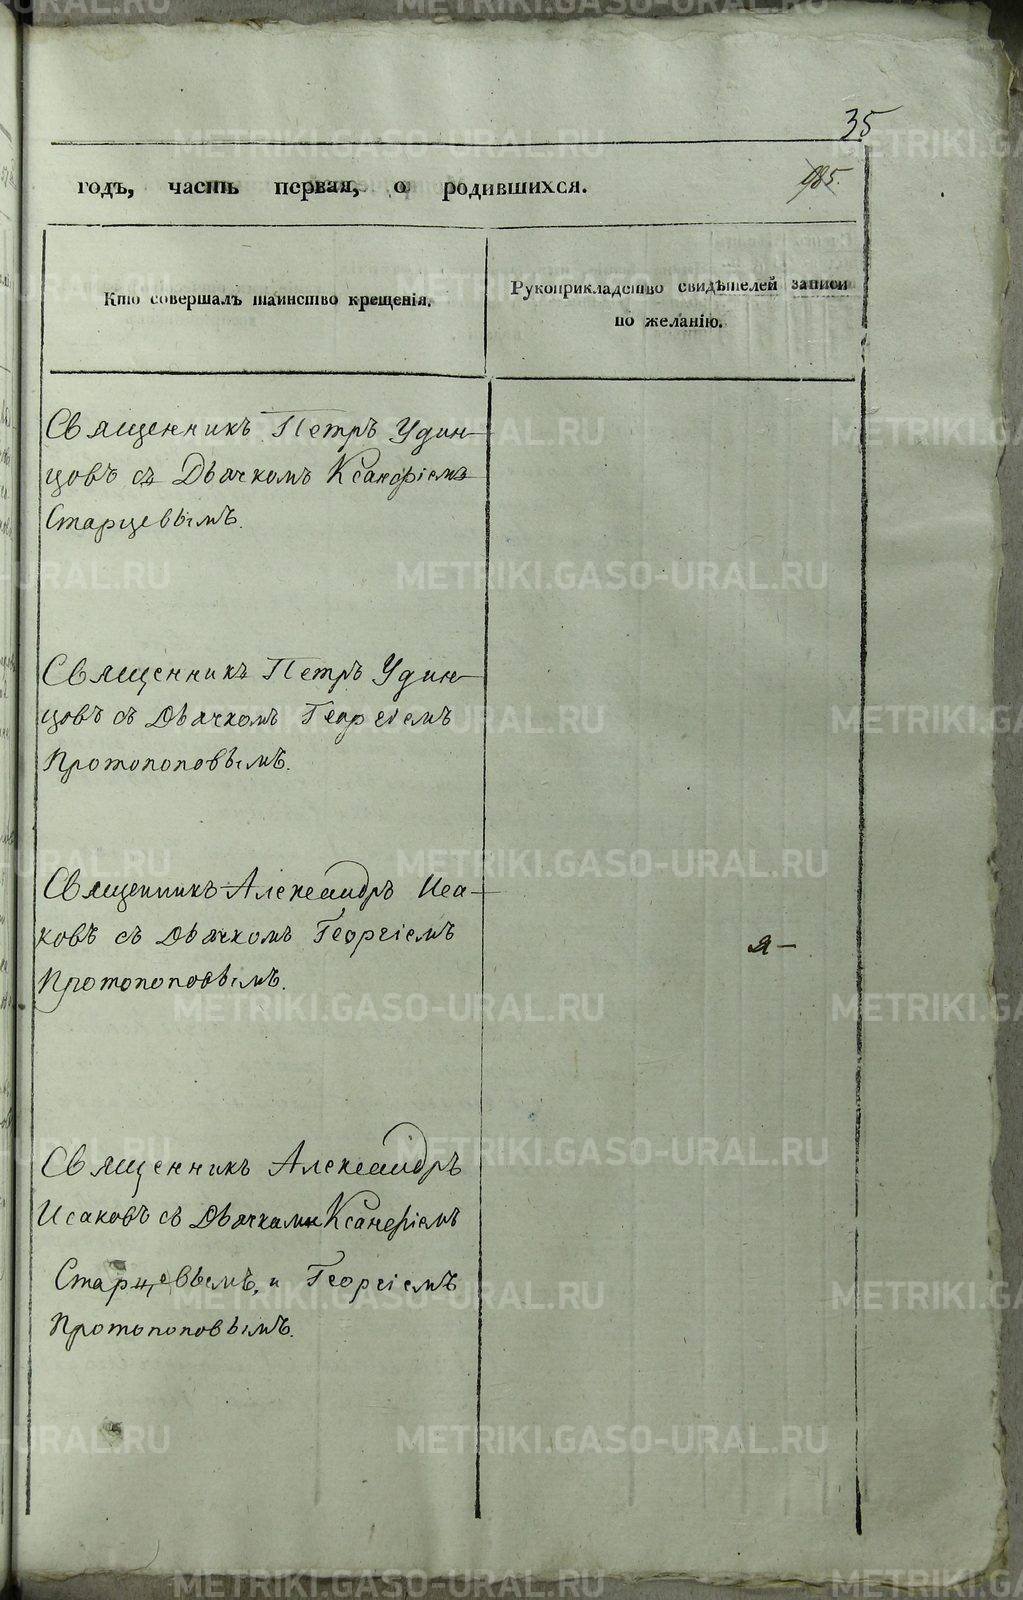 35
годъ, часть первая, о родившихся.
985.
Кто совершалъ таинство крещенія.
Рукоприкладство свидѣтелей записи
по желанію.
Священникъ Петръ Удин-
цовъ съ Дьячкомъ Ксанфіемъ
Старцевымъ.
Священникъ Петръ Удин-
цовъ съ Дьячкомъ Георгіемъ
Протопоповымъ.
Священникъ Александръ Иса-
ковъ съ Дьячкомъ Георгіемъ
Протопоповымъ.
Я-
Священникъ Александръ
Исаковъ съ Дьячками Ксанфіемъ
Старцевымъ, и Георгіемъ
Протопоповымъ.
METRIKI.GASO-URAL.RU